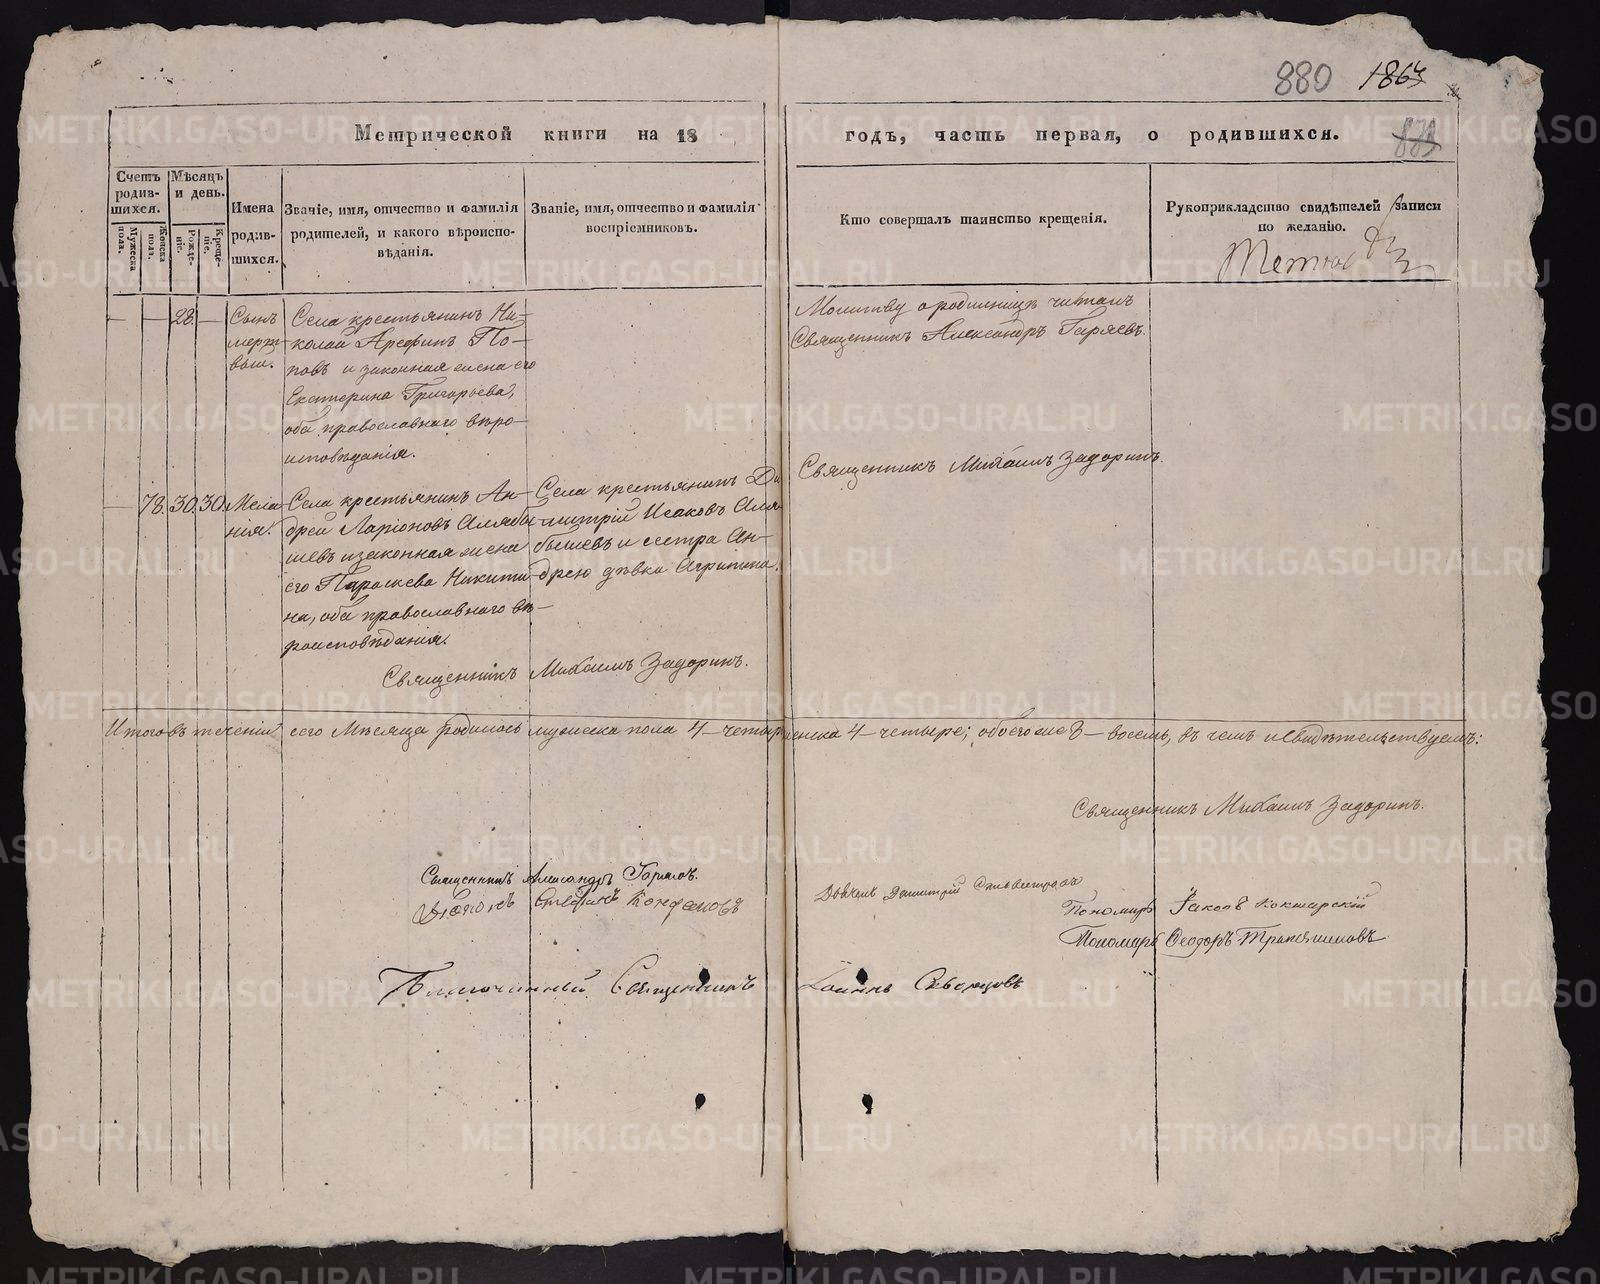 880 1864
883
Метрической книги на 18 годъ, часть первая, о родившихся.
Счетъ родившихся.
Мужеска пола.
Женска пола.
Мѣсяцъ и день.
Рожденіе.
Крещеніе.
Имена родившихся.
Званіе, имя, отчество и фамилія родителей, и какого вѣроисповѣданія.
Званіе, имя, отчество и фамилія воспріемниковъ.
Кто совершалъ таинство крещенія.
Рукоприкладство свидѣтелей записи по желанію.
— — 28. —
Сынъ
мерт-
вый.
Села крестьянинъ Ни-
колай Арефинъ По-
повъ и законная жена его
Екатерина Григорьева,
оба православнаго вѣро-
исповѣданія.
Молитву о родильницѣ читалъ
Священникъ Александръ Гаряевъ.
— 78. 30. 30.
Мела-
нія.
Села крестьянинъ Ан-
дрей Ларіоновъ Алябы-
шевъ и законная жена
его Параскева Никити-
на, оба православнаго вѣ-
роисповѣданія.
Села крестьянинъ Ди-
митрій Исаковъ Аля-
бышевъ и сестра Ан-
дрею дѣвка Агрипина.
Священникъ Михаилъ Задоринъ.
Священникъ Михаилъ Задоринъ.
Итого въ теченіи сего Мѣсяца родилось мужеска пола 4 — четыре женска 4 — четыре; обоего же 8 — восемь, въ чемъ и свидѣтельствуемъ:
Священникъ Михаилъ Задоринъ.
Священникъ Александръ Гаряевъ.
Діаконъ Стефанъ
Дьячекъ Димитрій
Пономарь Іаковъ Кокшарскій
Пономарь Ѳеодоръ
Благочинный Священникъ Іоаннъ Скворцовъ
METRIKI.GASO-URAL.RU